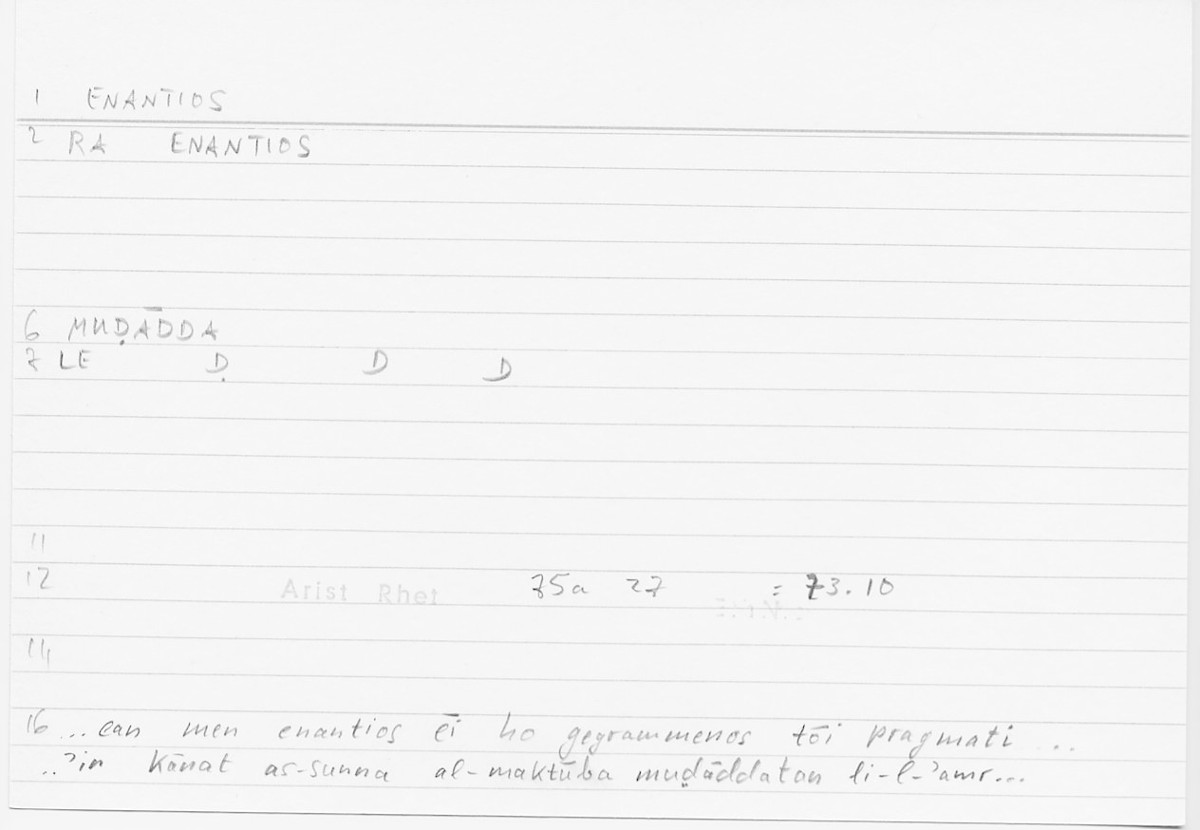 1 ENANTIOS
2 RA ENANTIOS
6 MUḌĀDDA
7 LE Ḍ D D
11
12 Arist Rhet 75a 27 = 73.10
14
16 ...ean men enantios ēi ho gegrammenos tōi pragmati ...
..ʾin kānat as-sunna al-maktūba muḍāddatan li-l-ʾamr...